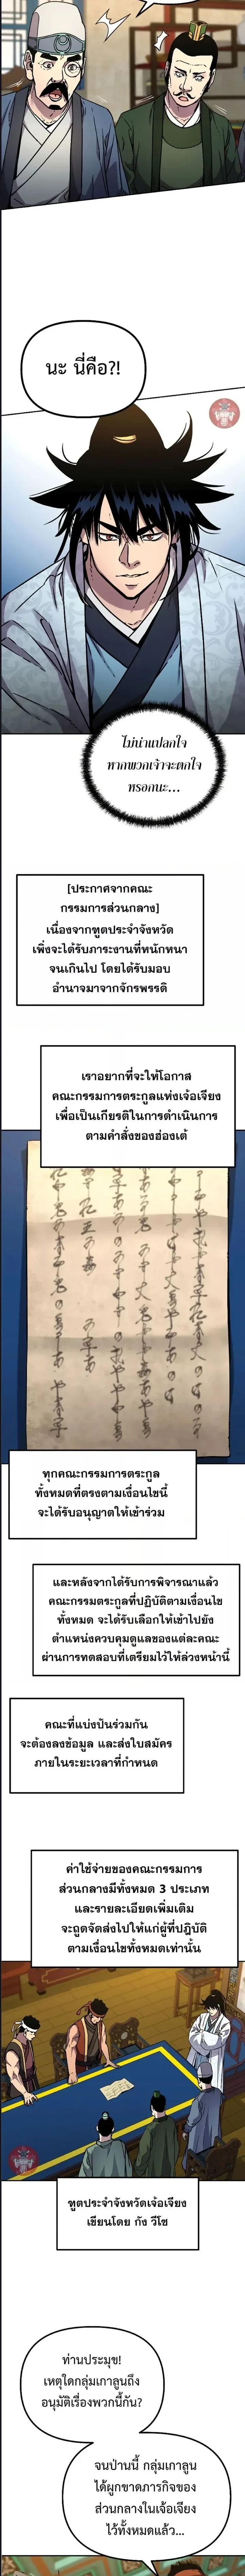 นะ นี่คือ?!
ไม่น่าแปลกใจ
หากพวกเจ้าจะตกใจ
หรอกนะ...
[ประกาศจากคณะ
กรรมการส่วนกลาง]
เนื่องจากทูตประจำจังหวัด
เพิ่งจะได้รับภาระงานที่หนักหนา
จนเกินไป โดยได้รับมอบ
อำนาจมาจากจักรพรรดิ
เราอยากที่จะให้โอกาส
คณะกรรมการตระกูลแห่งเจ้อเจียง
เพื่อเป็นเกียรติในการดำเนินการ
ตามคำสั่งของฮ่องเต้
ทุกคณะกรรมการตระกูล
ทั้งหมดที่ตรงตามเงื่อนไขนี้
จะได้รับอนุญาตให้เข้าร่วม
และหลังจากได้รับการพิจารณาแล้ว
คณะกรรมตระกูลที่ปฏิบัติตามเงื่อนไข
ทั้งหมด จะได้รับเลือกให้เข้าไปยัง
ตำแหน่งควบคุมดูแลของแต่ละคณะ
ผ่านการทดสอบที่เตรียมไว้ให้ล่วงหน้านี้
คณะที่แบ่งปันร่วมกัน
จะต้องลงข้อมูล และส่งใบสมัคร
ภายในระยะเวลาที่กำหนด
ค่าใช้จ่ายของคณะกรรมการ
ส่วนกลางมีทั้งหมด 3 ประเภท
และรายละเอียดเพิ่มเติม
จะถูกจัดส่งไปให้แก่ผู้ที่ปฏิบัติ
ตามเงื่อนไขทั้งหมดเท่านั้น
ทูตประจำจังหวัดเจ้อเจียง
เขียนโดย กัง วีโซ
ท่านประมุข!
เหตุใดกลุ่มเกาลูนถึง
อนุมัติเรื่องพวกนี้กัน?
จนป่านนี้ กลุ่มเกาลูน
ได้ผูกขาดภารกิจของ
ส่วนกลางในเจ้อเจียง
ไว้ทั้งหมดแล้ว...